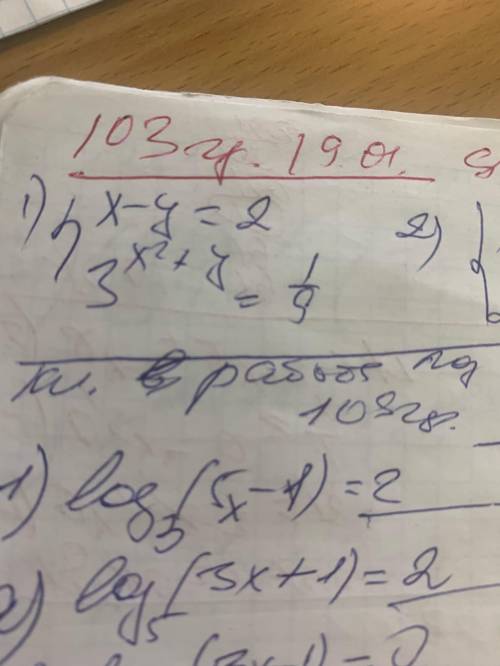 103 гр. 19.01.
1) { x-y=2
3^{x²+y} = 1/9
2) {
кл. работа
103 гр.
1) log₃(5x-1)=2
2) log₅(3x+1)=2